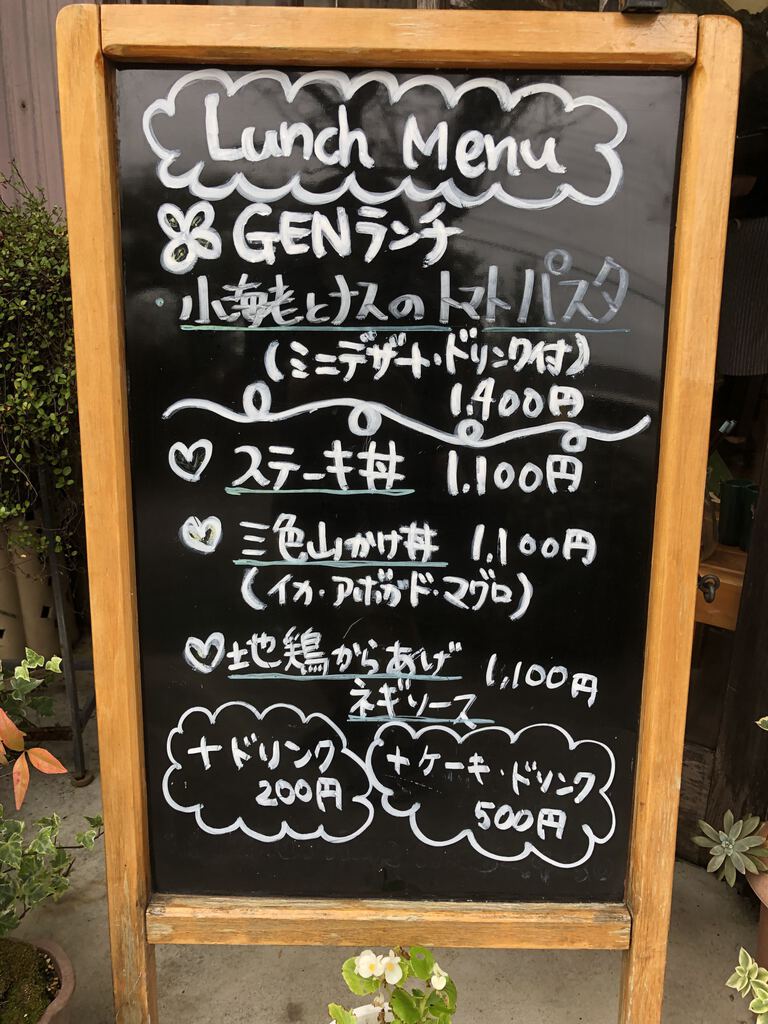 Lunch Menu
GENランチ
小海老とナスのトマトパスタ
(ミニデザート・ドリンク付)
1.400円
ステーキ丼 1.100円
三色山かけ丼 1.100円
(イカ・アボカド・マグロ)
地鶏からあげ 1,100円
ネギソース
+ドリンク
200円
+ケーキ・ドリンク
500円